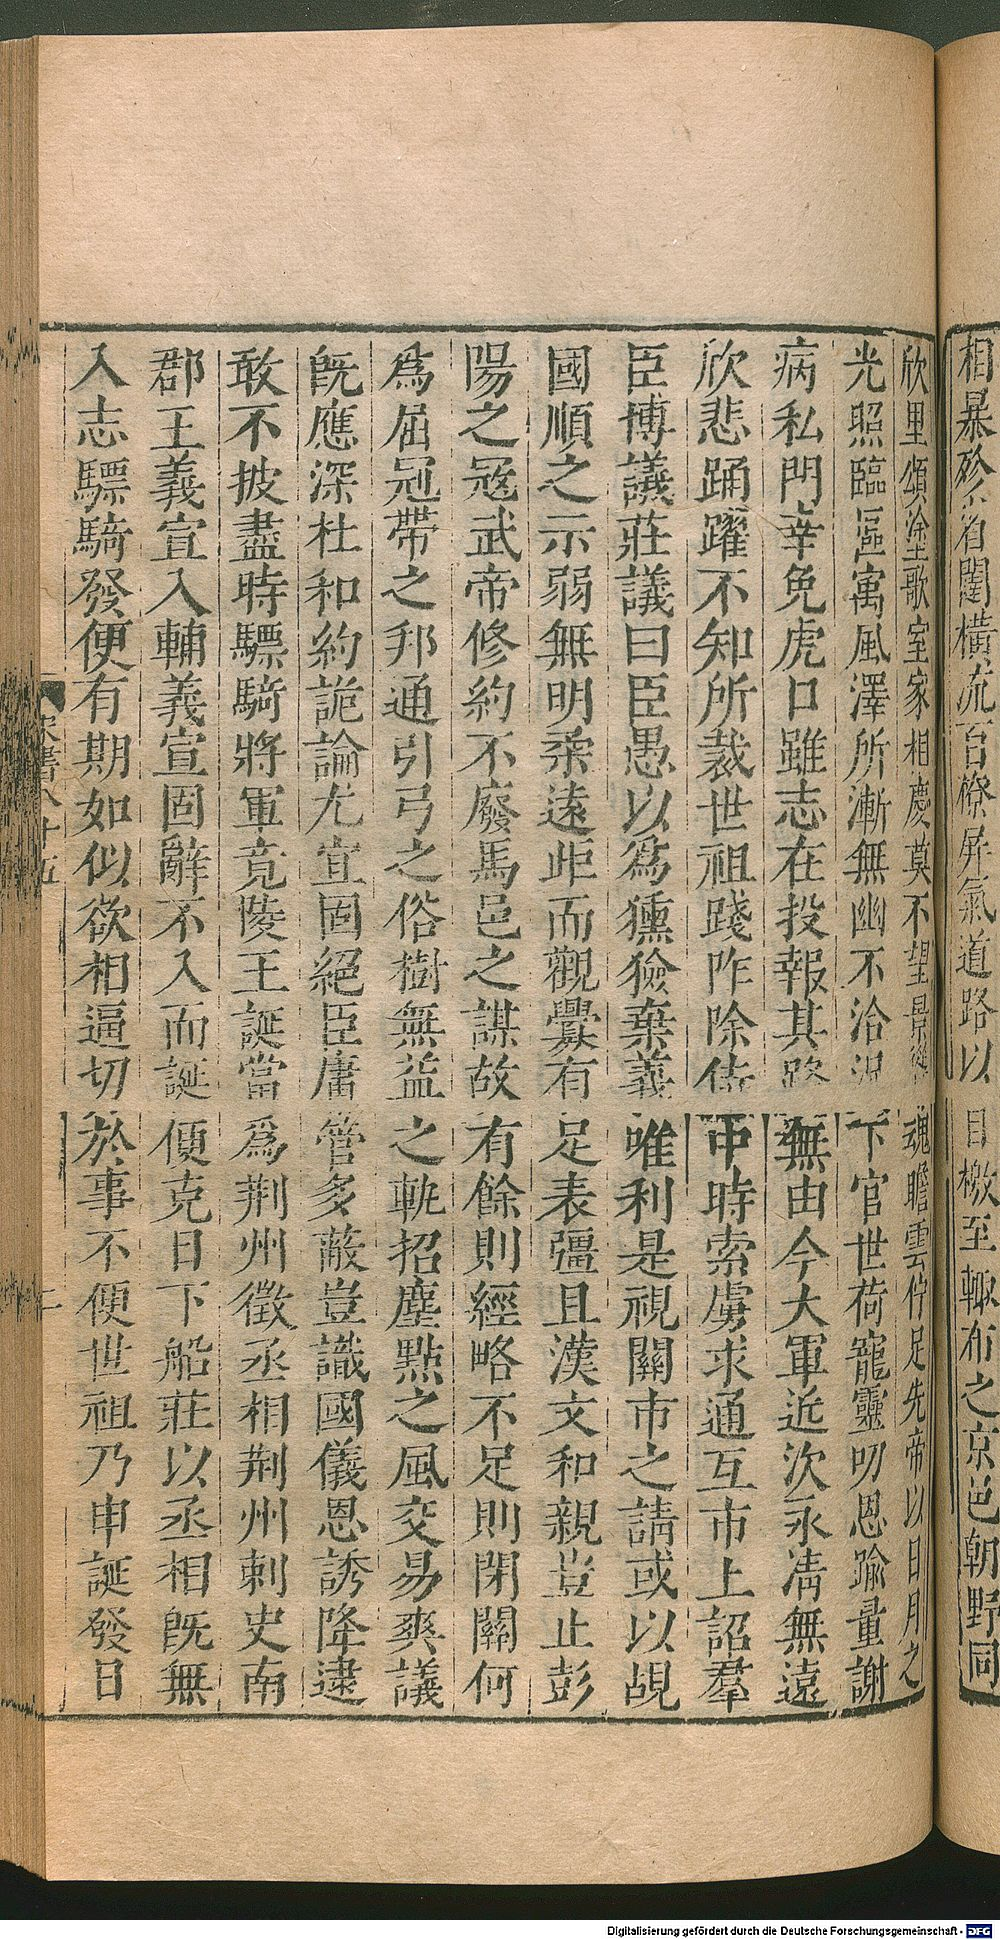 相暴殄省闥橫流百僚屏氣道路以目檄至輙布之京邑朝野同
欣里頌塗歌室家相慶莫不望景聳魂瞻雲佇足先帝以日月之
光照臨區寓風澤所漸無幽不洽況下官世荷寵靈叨恩踰量謝
病私門幸免虎口雖志在投報其路無由今大軍近次永淸無遠
欣悲踊躍不知所裁世祖踐阼除侍中時索虜求通互市上詔羣
臣博議莊議曰臣愚以爲獯獫棄義唯利是視關市之請或以覘
國順之示弱無明柔遠距而觀釁有足表彊且漢文和親豈止彭
陽之寇武帝修約不廢馬邑之謀故有餘則經略不足則閉關何
爲屈冠帶之邦通引弓之俗樹無益之軌招塵點之風交易爽議
旣應深杜和約詭論尤宜固絕臣庸管多蔽豈識國儀恩誘降逮
敢不披盡時驃騎將軍竟陵王誕當爲荆州徵丞相荆州刺史南
郡王義宣入輔義宣固辭不入而誕便克日下船莊以丞相旣無
入志驃騎發便有期如似欲相逼切於事不便世祖乃申誕發日
宋書八十五
二
Digitalisierung gefördert durch die Deutsche Forschungsgemeinschaft - DFG